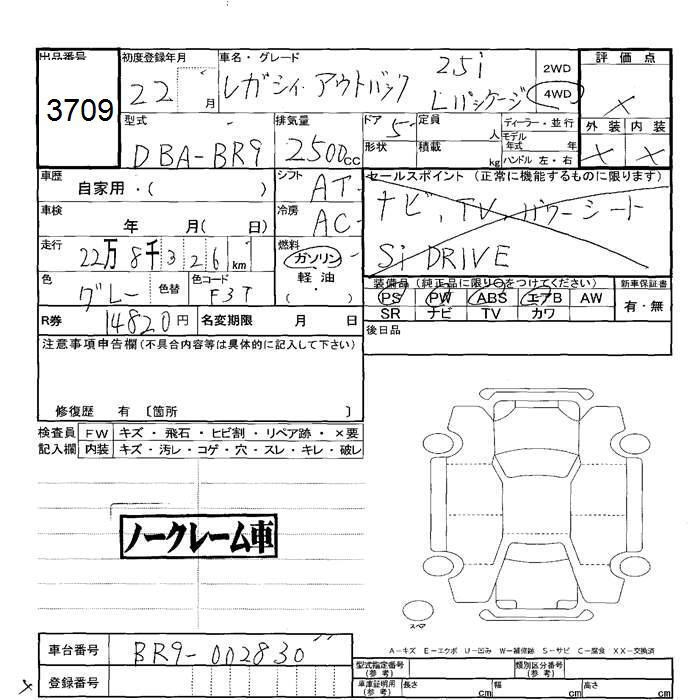 出品番号
3709
初度登録年月
22 月
車名・グレード
レガシィ アウトバック 2.5i
Lパッケージ
2WD
4WD
評価点
X
外装 内装
X X
型式
DBA-BR9
排気量
2500cc
ドア 5
形状
定員 人
積載 kg
ディーラー・並行
モデル年式 年
ハンドル 左・右
車歴
自家用・( )
シフト
AT
セールスポイント (正常に機能するものに限ります)
ナビ、TV、パワーシート
Si DRIVE
車検
年 月( 日)
冷房
AC
走行
22万8千326km
燃料
ガソリン
(軽油)
・
色
グレー
色替
色コード
F3T
装備品 (純正品に限り○をつけてください)
PS PW ABS エアB AW
SR ナビ TV カワ
新車保証書
有・無
R券 14820円
名変期限 月 日
後日品
注意事項申告欄(不具合内容等は具体的に記入して下さい)
修復歴 有 〔箇所 〕
検査員記入欄
FW キズ・飛石・ヒビ割・リペア跡・×要
内装 キズ・汚レ・コゲ・穴・スレ・キレ・破レ
ノークレーム車
スペア
A-キズ E-エクボ U-凹み W-補修跡 S-サビ C-腐食 XX-交換済
車台番号
BR9-002830
登録番号
型式指定番号(参考)
類別区分番号(参考)
車庫証明用(参考) 長さ cm 幅 cm 高さ cm
X